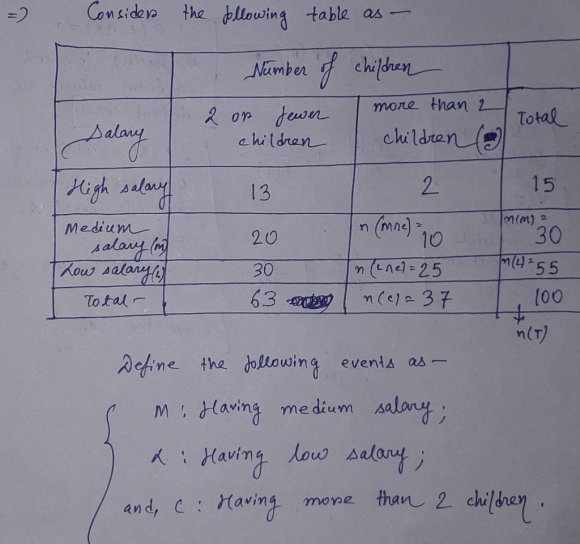 =) Consider the following table as —
Number of children
Salary 2 or fewer children more than 2 children (c) Total
High salary 13 2 15
Medium salary (m) 20 n(M∩C) = 10 n(M) = 30
Low salary (L) 30 n(L∩C) = 25 n(L) = 55
Total – 63 n(C) = 37 100
n(T)
Define the following events as —
M : Having medium salary ;
L : Having low salary ;
and, C : Having more than 2 children .